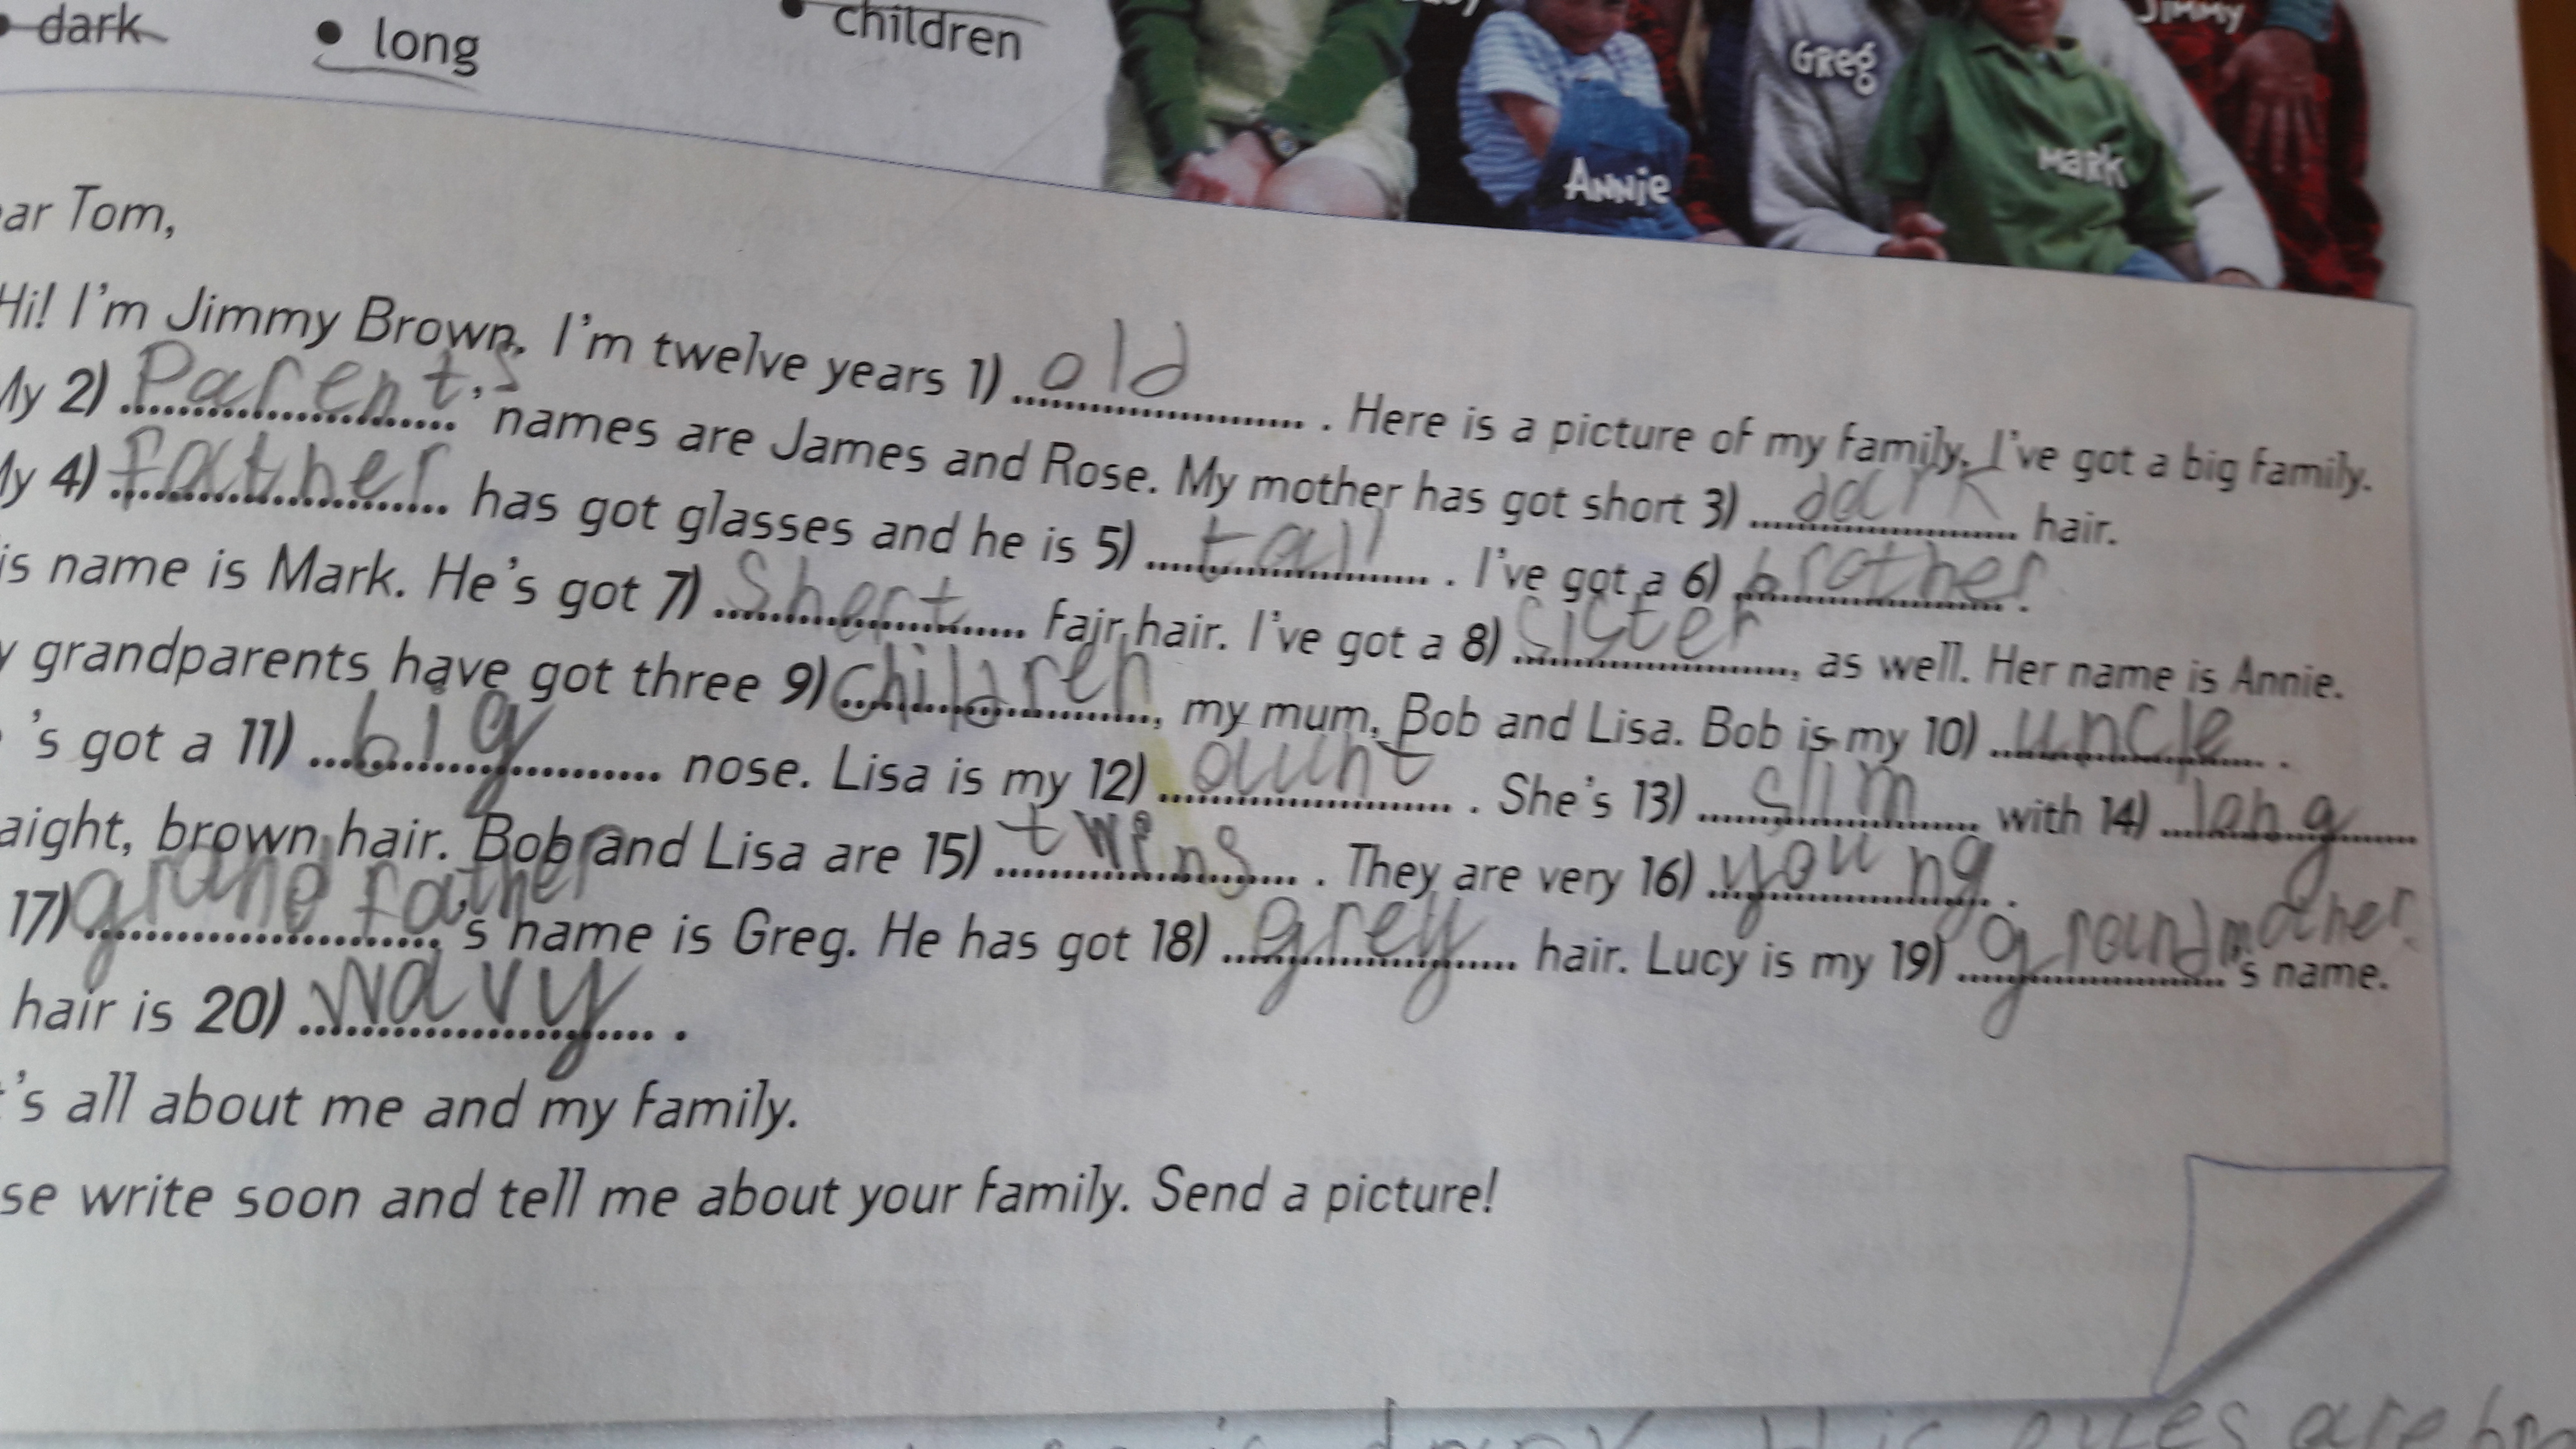 dark
long
children
Jimmy
Greg
Annie
Mark
ar Tom,
Hi! I'm Jimmy Brown. I'm twelve years 1) old . Here is a picture of my family. I've got a big family.
My 2) Parents ' names are James and Rose. My mother has got short 3) dark hair.
My 4) father has got glasses and he is 5) tall . I've got a 6) brother .
is name is Mark. He's got 7) Short fair hair. I've got a 8) sister , as well. Her name is Annie.
y grandparents have got three 9) children , my mum, Bob and Lisa. Bob is my 10) uncle .
's got a 11) big nose. Lisa is my 12) aunt . She's 13) slim with 14) long
aight, brown hair. Bob and Lisa are 15) twins . They are very 16) young .
17) grand father 's name is Greg. He has got 18) grey hair. Lucy is my 19) grandmother 's name.
hair is 20) wavy .
's all about me and my family.
se write soon and tell me about your family. Send a picture!